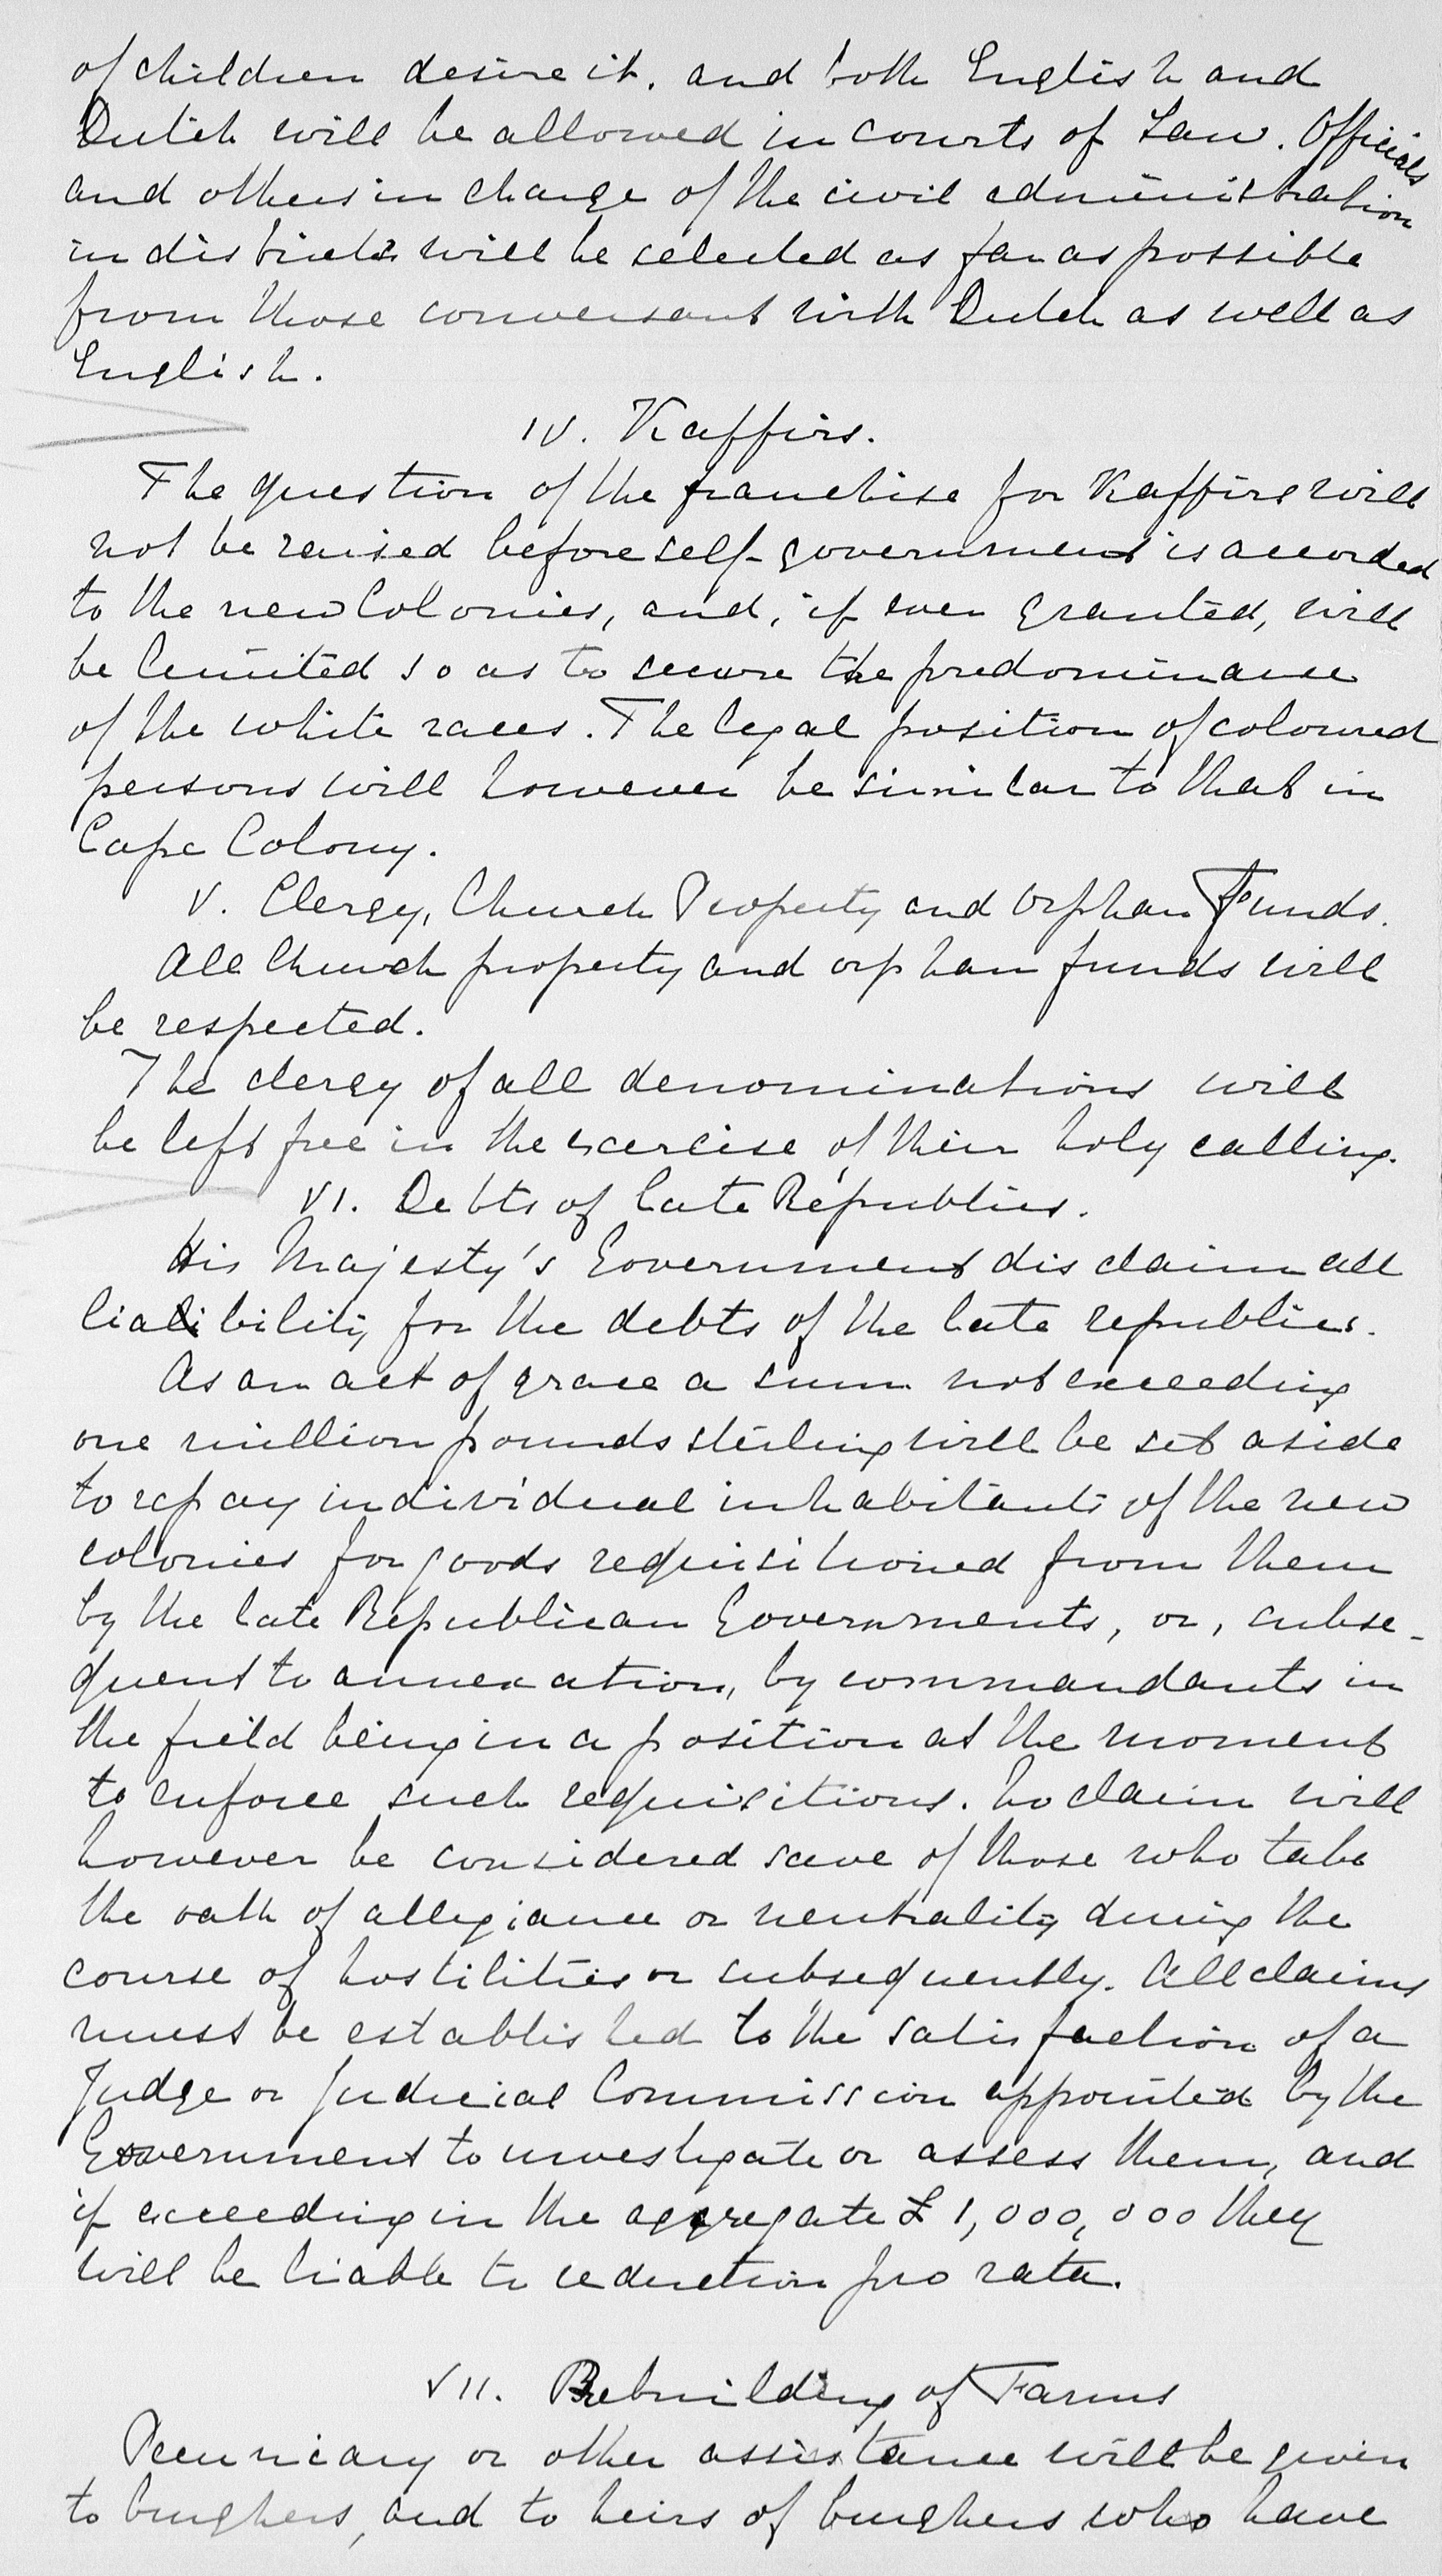 of children desire it. and both English and
Dutch will be allowed in courts of Law. Officials
and others in charge of the civil administration
in districts will be selected as far as possible
from those conversant with Dutch as well as
English.
IV. Kaffirs.
The question of the franchise for Kaffirs will
not be raised before self-government is accorded
to the new Colonies, and, if ever granted, will
be limited so as to secure the predominance
of the white races. The legal position of coloured
persons will however be similar to that in
Cape Colony.
V. Clergy, Church Property and Orphan Funds.
All Church property and orphan funds will
be respected.
The clergy of all denominations will
be left free in the exercise of their holy calling.
VI. Debts of late Republics.
His Majesty's Government disclaim all
liability for the debts of the late republics.
As an act of grace a sum not exceeding
one million pounds sterling will be set aside
to repay individual inhabitants of the new
colonies for goods requisitioned from them
by the late Republican Governments, or, subse-
quent to annexation, by commandants in
the field being in a position at the moment
to enforce such requisitions. No claim will
however be considered save of those who take
the oath of allegiance or neutrality during the
course of hostilities or subsequently. All claims
must be established to the satisfaction of a
Judge or Judicial Commission appointed by the
Government to investigate or assess them, and
if exceeding in the aggregate £1,000,000 they
will be liable to reduction pro rata.
VII. Rebuilding of Farms
Pecuniary or other assistance will be given
to burghers, and to heirs of burghers who have